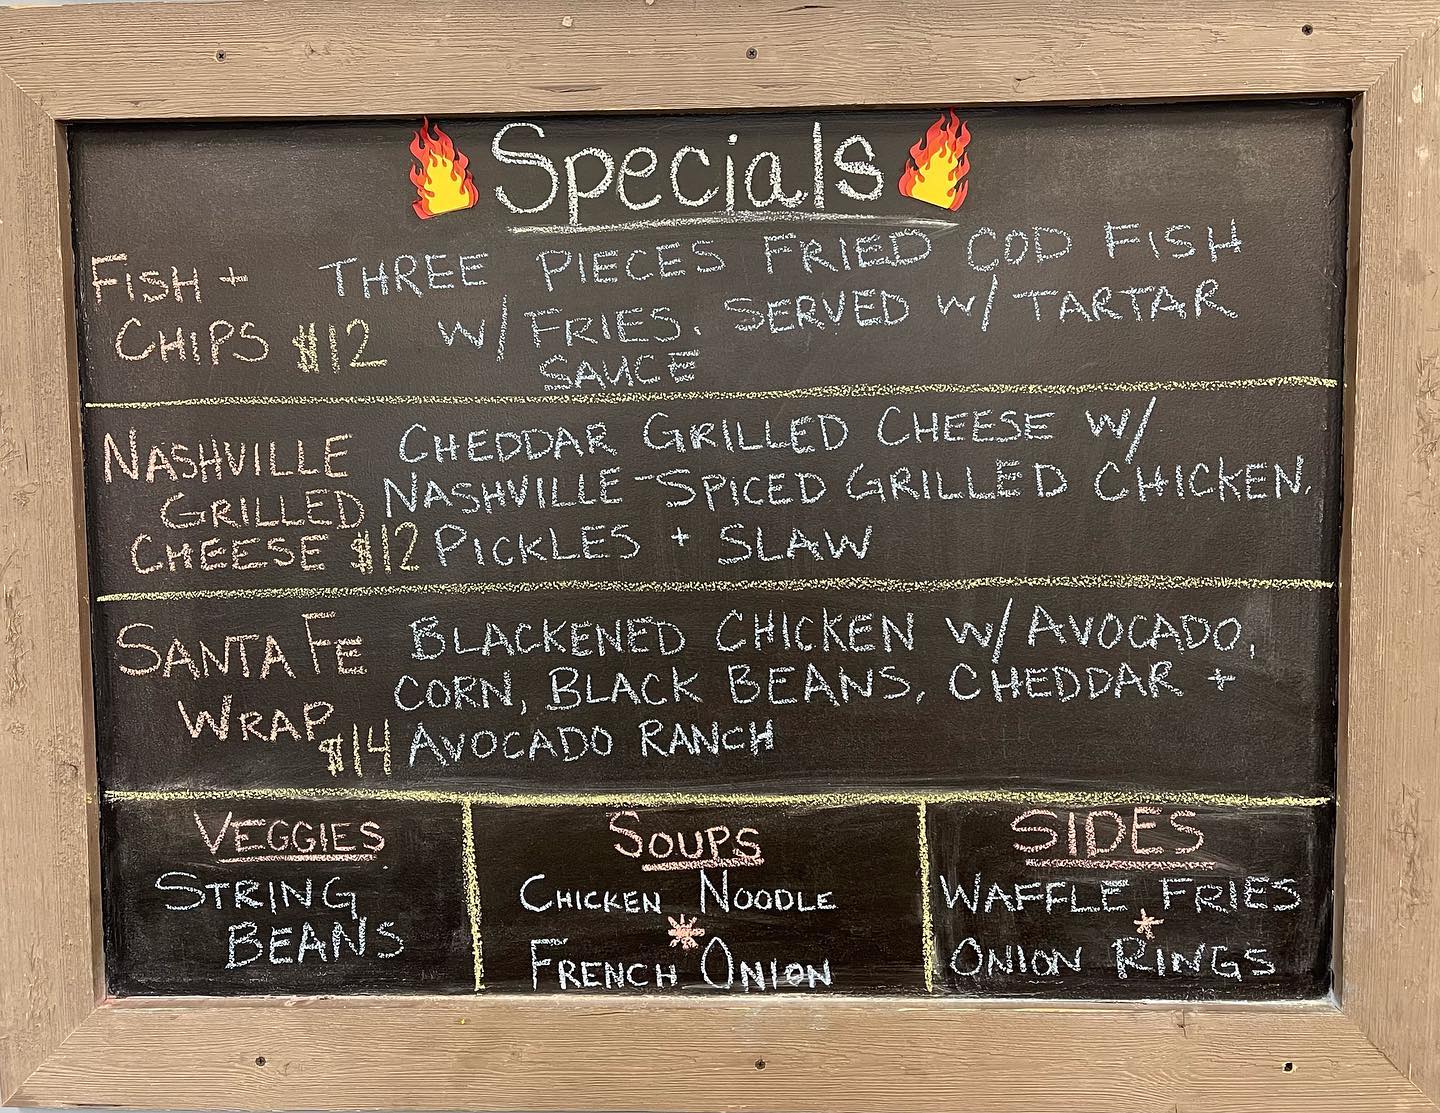 Specials
FISH + CHIPS $12
THREE PIECES FRIED COD FISH
W/ FRIES. SERVED W/ TARTAR
SAUCE
NASHVILLE
GRILLED
CHEESE $12
CHEDDAR GRILLED CHEESE W/
NASHVILLE-SPICED GRILLED CHICKEN,
PICKLES + SLAW
SANTA FE
WRAP
$14
BLACKENED CHICKEN W/ AVOCADO,
CORN, BLACK BEANS, CHEDDAR +
AVOCADO RANCH
VEGGIES
STRING
BEANS
SOUPS
CHICKEN NOODLE
FRENCH ONION
SIDES
WAFFLE FRIES
ONION RINGS